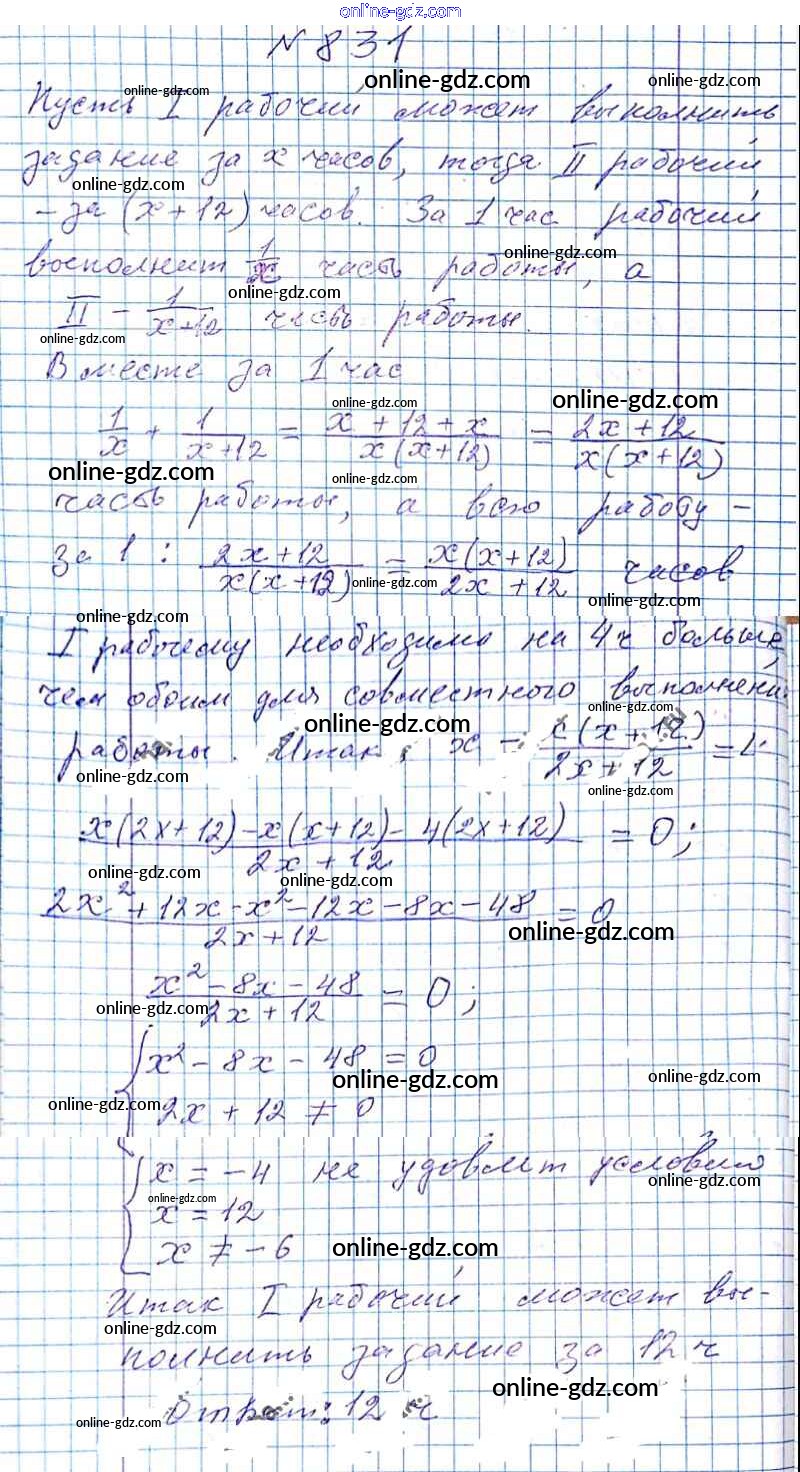 online-gdz.com
N 831
online-gdz.com online-gdz.com online-gdz.com
Пусть I рабочий может выполнить
задание за x часов, тогда II рабочий
online-gdz.com online-gdz.com
– за (x+12) часов. За 1 час рабочий
online-gdz.com
восполнит 1/x часть работы, а
online-gdz.com
II – 1/(x+12) часть работы.
online-gdz.com
Вместе за 1 час
online-gdz.com
1/x + 1/(x+12) = (x+12+x)/(x(x+12)) = (2x+12)/(x(x+12))
online-gdz.com online-gdz.com
часть работы, а всю работу –
за 1 : (2x+12)/(x(x+12)) = x(x+12)/(2x+12) часов
online-gdz.com
online-gdz.com online-gdz.com
I рабочему необходимо на 4 ч больше,
чем обоим для совместного выполнени
online-gdz.com online-gdz.com
работы. Итак, x – x(x+12)/(2x+12) = 4
online-gdz.com online-gdz.com
(x(2x+12)-x(x+12)-4(2x+12))/(2x+12) = 0;
online-gdz.com online-gdz.com
(2x²+12x-x²-12x-8x-48)/(2x+12) = 0
online-gdz.com
(x²-8x-48)/(2x+12) = 0;
online-gdz.com online-gdz.com
{ x²-8x-48=0
online-gdz.com online-gdz.com
2x+12≠0
online-gdz.com
{ x=-4 не удовлет условию
online-gdz.com online-gdz.com
x=12
x≠-6
online-gdz.com
Итак I рабочий может вы-
online-gdz.com
полнить задание за 12 ч
online-gdz.com
Ответ: 12 ч
online-gdz.com